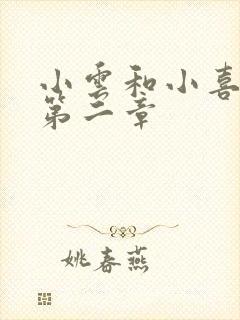 小雲和小喜
第二章
姚春燕